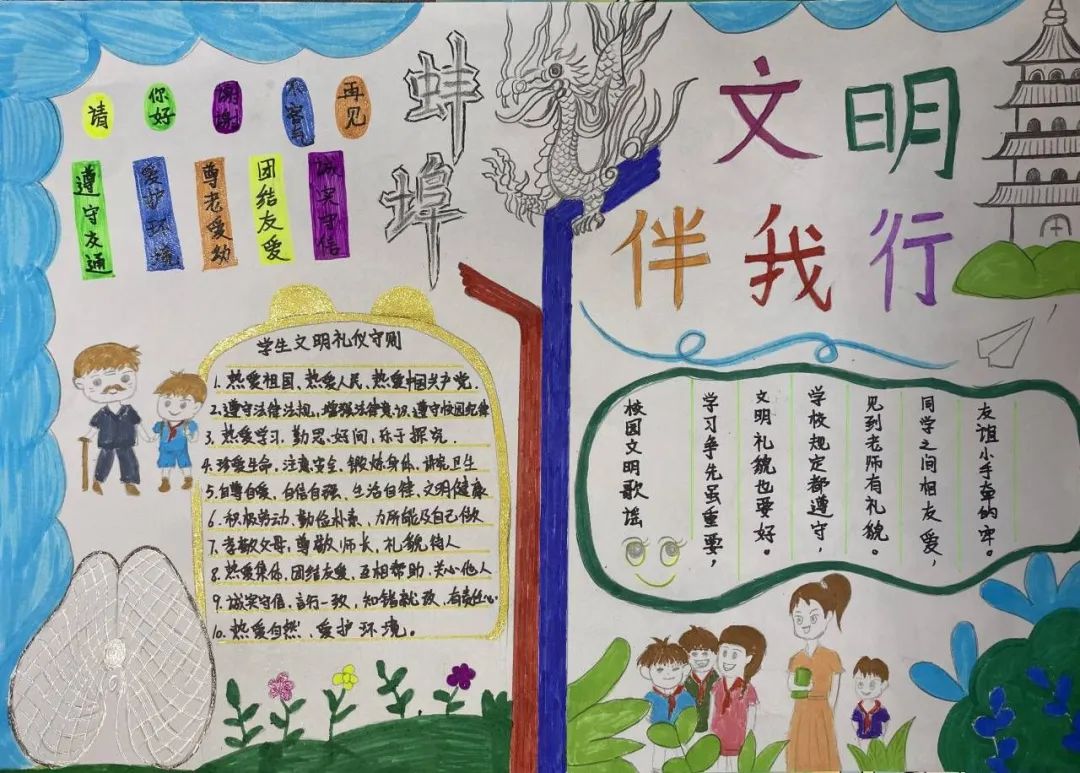 请
你好
谢谢
不客气
再见
遵守友通
爱护环境
尊老爱幼
团结友爱
诚实守信
蚌埠
文明
伴我行
学生文明礼仪守则
1. 热爱祖国、热爱人民、热爱中国共产党.
2. 遵守法律法规,增强法律意识.遵守校园纪律
3. 热爱学习、勤思、好问、乐于探究.
4. 珍爱生命,注意安全,锻炼身体,讲究卫生
5. 自尊自爱、自信自强、生活自律、文明健康
6. 积极劳动、勤俭朴素、力所能及自己做
7. 孝敬父母,尊敬师长、礼貌待人
8. 热爱集体,团结友爱、互相帮助、关心他人
9. 诚实守信、言行一致、知错就改、有责任心
10. 热爱自然、爱护环境。
校园文明歌谣
学习争先虽重要,
文明礼貌也要好。
学校规定都遵守,
见到老师有礼貌。
同学之间相友爱,
友谊小手牵的牢。